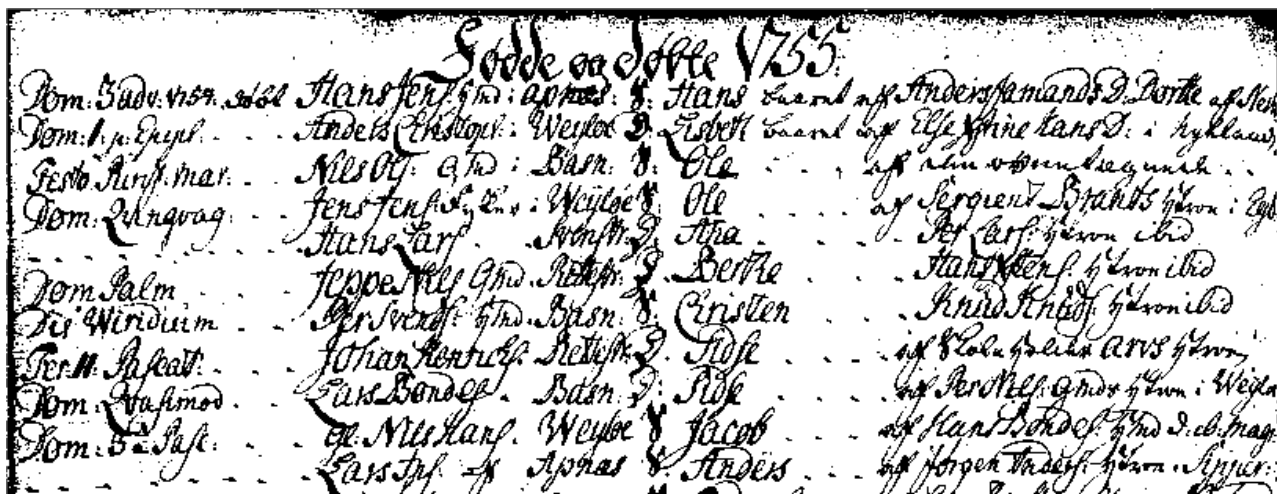 Fødde og Døbte 1755.
Dom: 3 adv: 1754. Hans Jens: Hmd: i apnæs: S: Hans baaret aff Anders Jamands D. Dorthe af Nest
Dom: 1. p. Epiph. . . Anders Christoph: i Weyløe D. Lisbeth baaret aff Else Stine Hans D: i
Festo Purif: Mar: . . Niels Ols: Gmd i Basn: S: Ole . . . . aff
Dom: Qvinqvag: . . . Jens Jens: i Weyløe S: Ole . . . . aff Sergient Brandts Hstrou: i
. . . . . . . . Hans Lars . . D: Ana . . . . Per Lars: Hstrou ibid
Dom Palm . . . . Jeppe Niels Gmd Rettestr: D. Berthe . . Hans Hstrou ibid
Die Wiridium . . . Per Svends: Hmd. Basn: S: Cristen . . . Knud Knuds: Hstrou ibid
Fer: II: Pascat: . . . Johan Henrichs: Rettestr: D. Sidse . . . . aff Arvs Hstrou
Dom: Qvasimod . . . Lars Bondes. . Basn: D: Sidse . . . . aff Per Niels: Gmds Hstrou: i Weyløe
Dom: 3 à Pasc: . . . Gl: Niels Hans: . Weyløe S Jacob . . . . aff Hans Bondes: Hmd
. . . . . . . . Lars Jens: af Apnæs S Anders . . . aff Jørgen Anders: Hstrou.